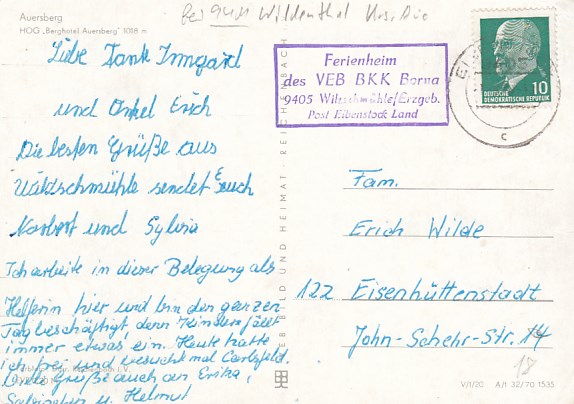 Auersberg
HOG „Berghotel Auersberg" 1018 m
bei Wildenthal Krs. Aue
Liebe Tante Irmgard
und Onkel Erich
Die besten Grüße aus
Wildschmühle sendet Euch
Norbert und Sylvia
Ich arbeite in dieser Belegung als
Helferin hier und bin den ganzen
Tag beschäftigt denn Kindern fällt
immer etwas ein. Heute hatte
ich frei und besuchte mal Carlsfeld.
Liebe Grüße auch an Erika,
u. Helmut
Ferienheim
des VEB BKK Borna
9405 Wiltzschmühle/Erzgeb.
Post Eibenstock Land
DEUTSCHE
DEMOKRATISCHE REPUBLIK
10
c
VEB BILD UND HEIMAT REICHENBACH
Fam.
Erich Wilde
122 Eisenhüttenstadt
John-Schehr-Str. 14
18
V/1/20 A/I 32/70 1535